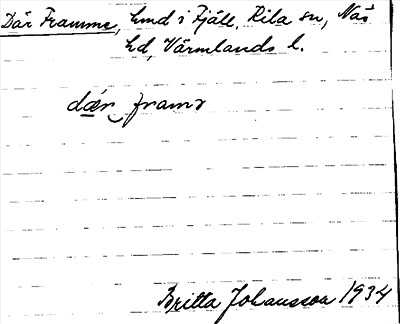 Där Framme, hmd i Fjäll, Kila sn, Näs
hd, Värmlands l.
dǽr framə
Britta Johansson 1934